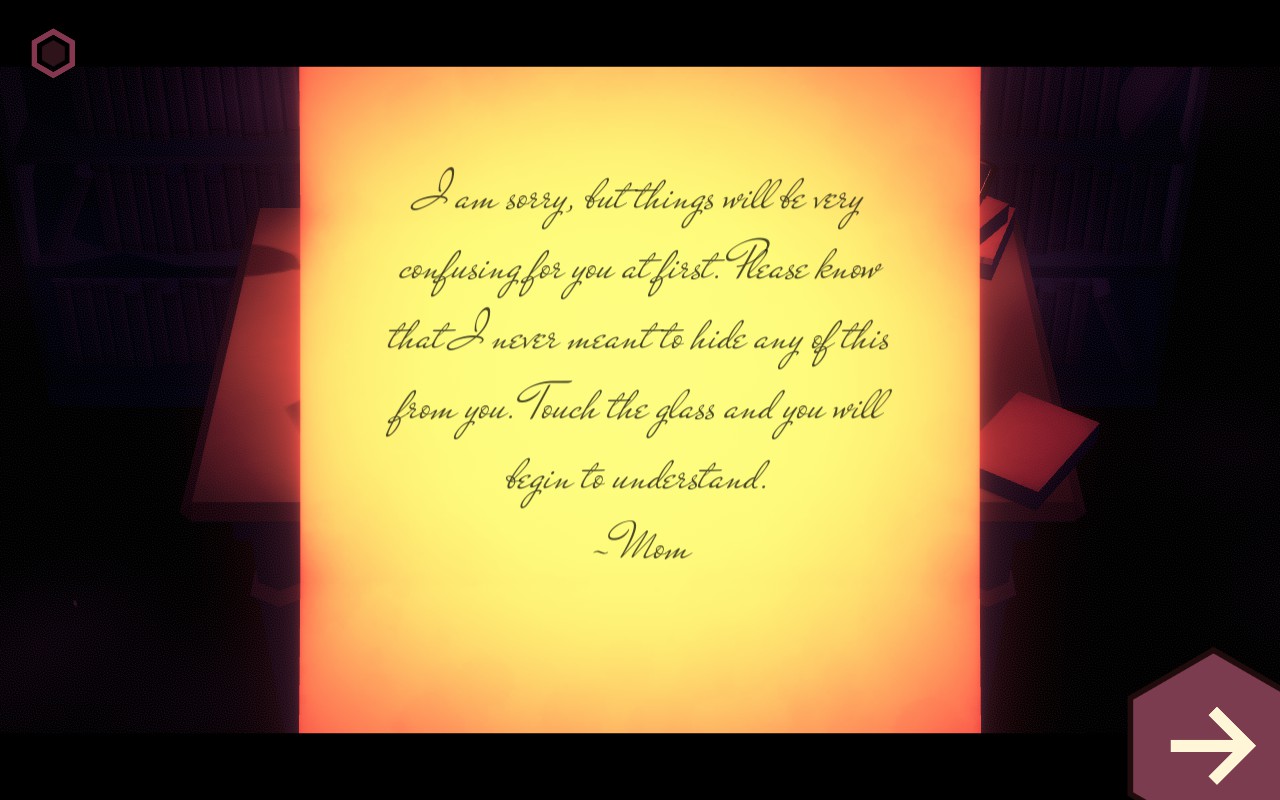 I am sorry, but things will be very
confusing for you at first. Please know
that I never meant to hide any of this
from you. Touch the glass and you will
begin to understand.
~Mom